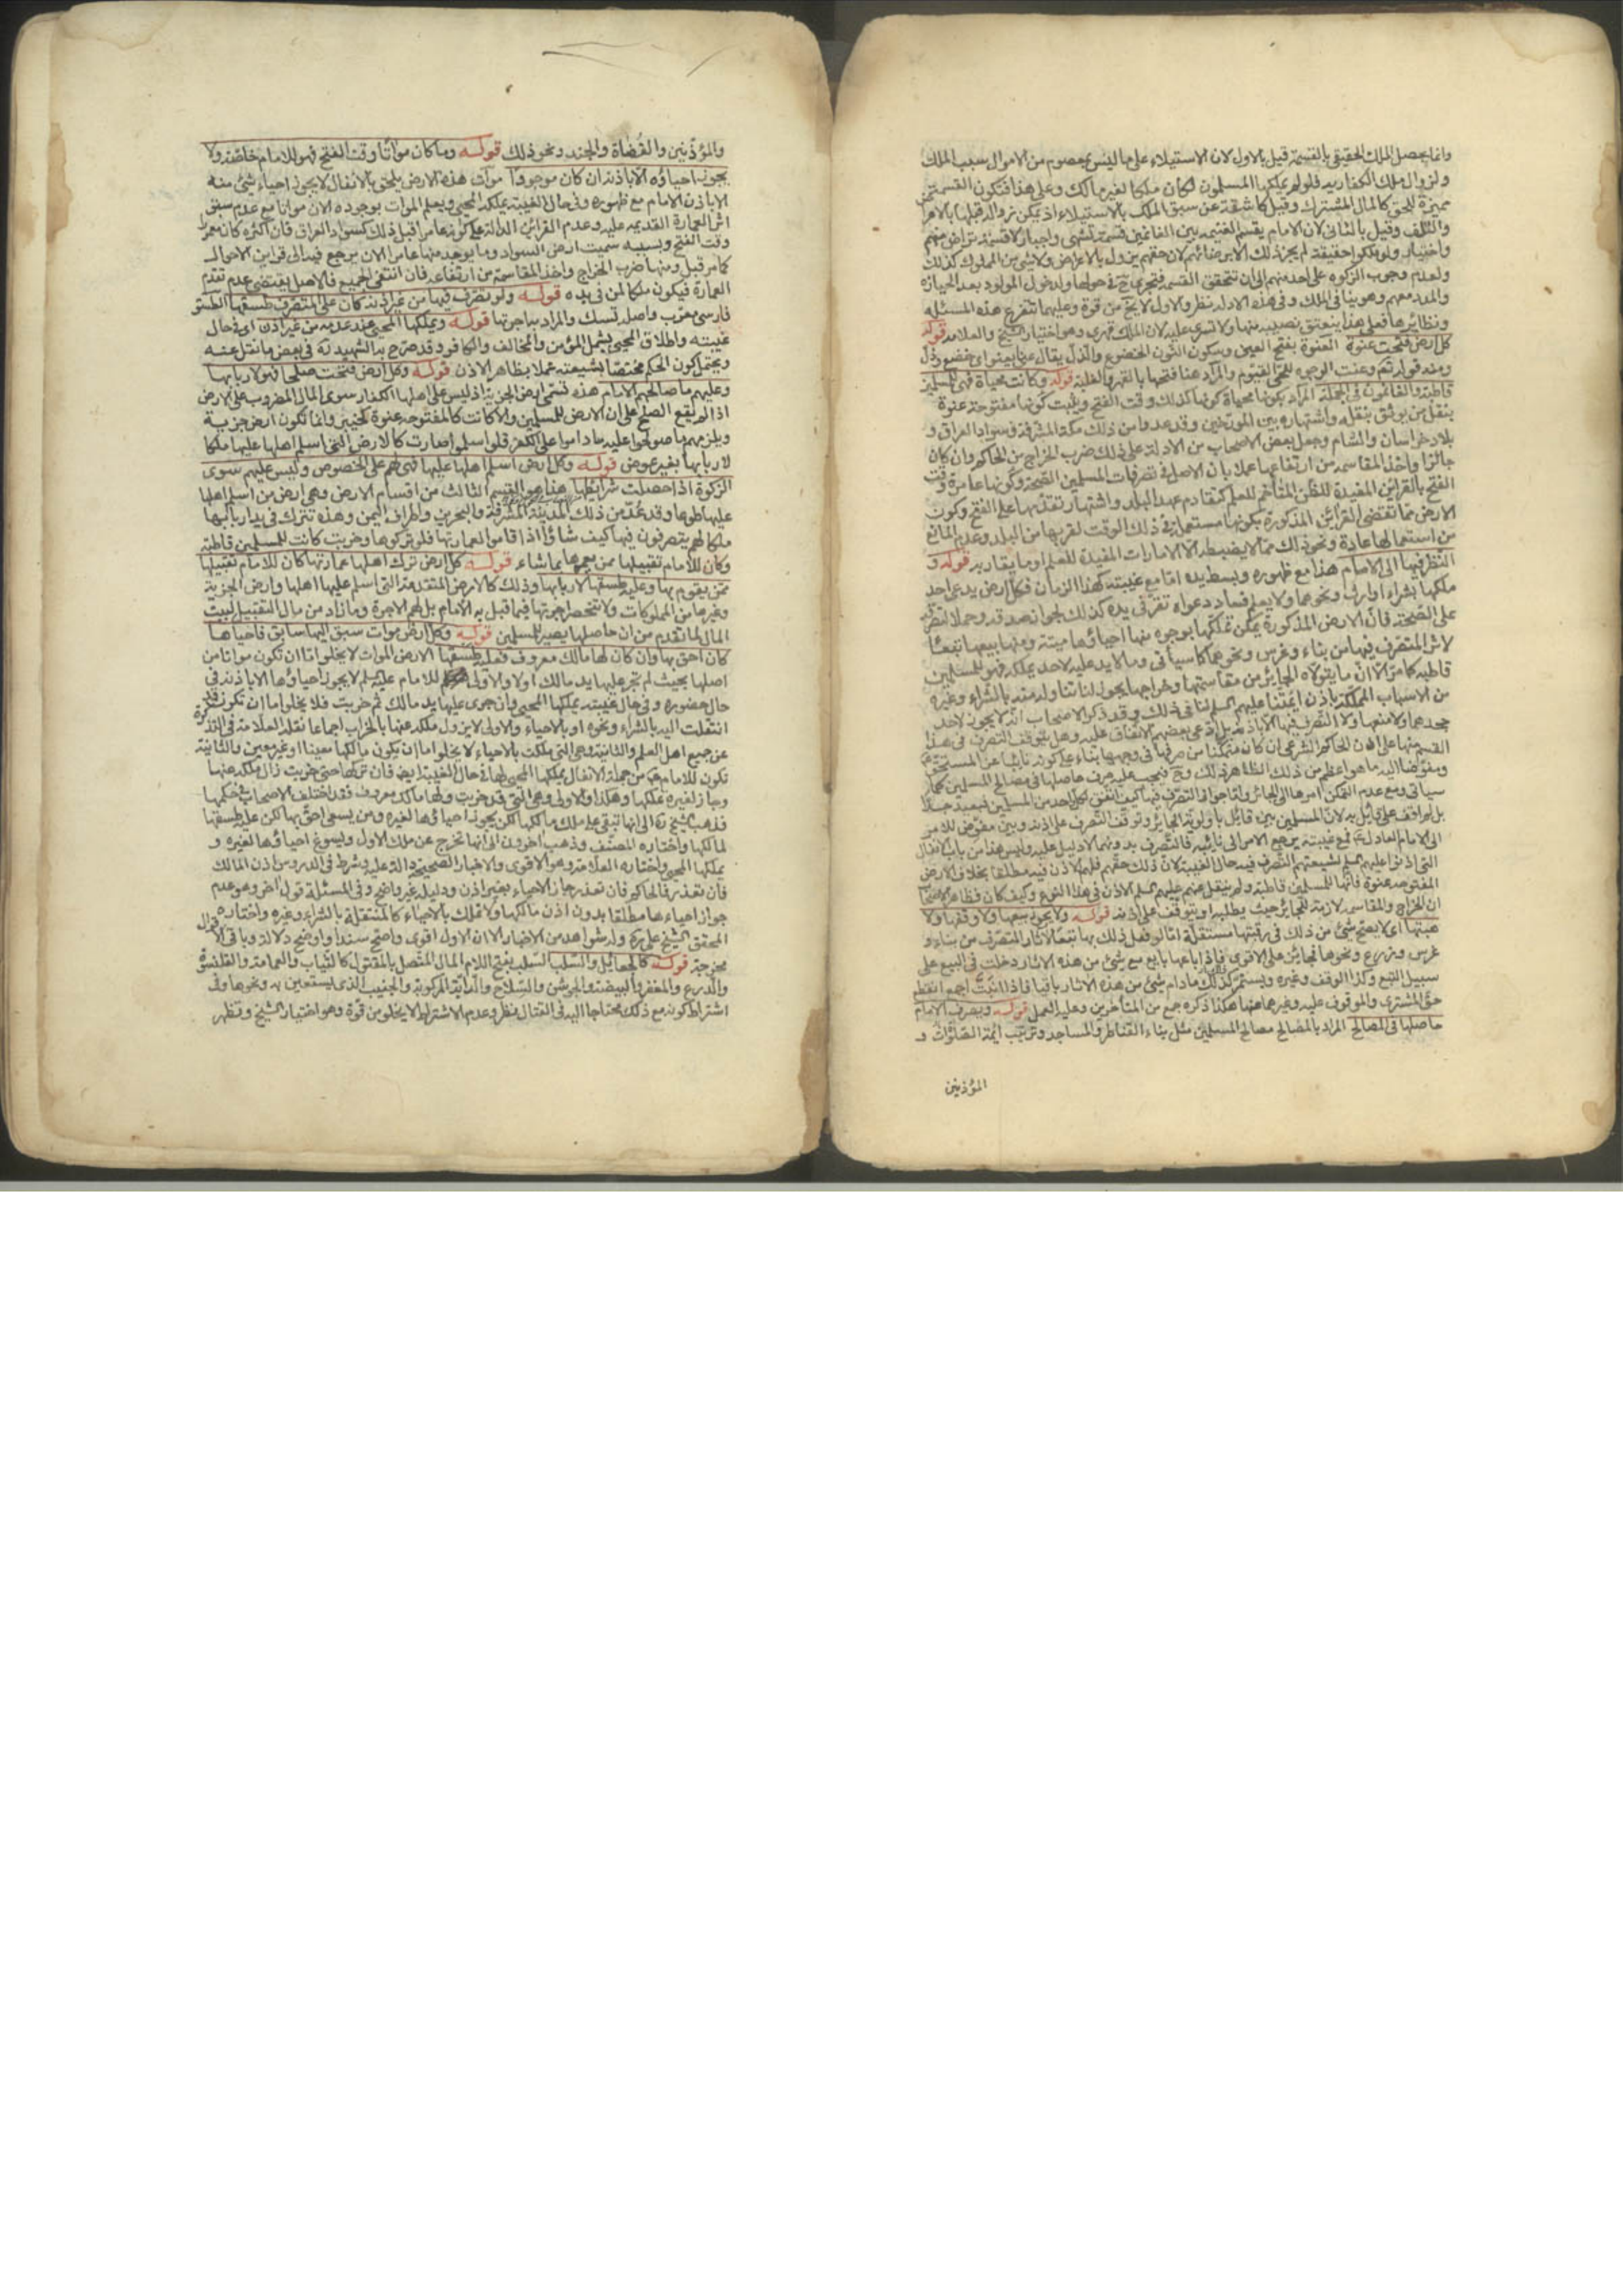 وانما يحصل الملك الحقيقى بالقسمة قيل بالاول لان الاستيلاء على ما ليس بمعصوم من الاموال سبب الملك
ولزوال ملك الكفار به فلو لم يملكها المسلمون لكان ملكا لغير مالك وعلى هذا فتكون القسمة
مميزة للحق كالمال المشترك وقيل كاشفة عن سبق الملك بالاستيلاء اذ يمكن زواله قبلها
والتلف وقيل بالثانى لان الامام يقسم الغنيمة بين الغانمين قسمة تشهى واجبار لا قسمة تراض منهم
واختيار ولو ملكوا حقيقة لم يجز ذلك الا برضائهم لان حقهم يزول بالاعراض ولا شئ من المملوك كذلك
ولعدم وجوب الزكوة على احد منهم الى ان تتحقق القسمة فتجرى ح فى حولها ولدخول المولود بعد الحيازة
والمدد معهم وهو ينافى الملك وفى هذه الادلة نظر والاول لا يخ من قوة وعليهما تتفرع هذه المسئله
ونظائرها فعلى هذا ينعتق نصيبه منها ولا تسرى عليه لان الملك قهرى وهو اختيار الشيخ والعلامه قوله
كل ارض فتحت عنوة العنوة بفتح العين وسكون النون الخضوع والذل يقال عنا يعنوا اى خضع وذل
ومنه قوله تعم وعنت الوجوه للحى القيوم والمراد هنا فتحها بالقهر والغلبة قوله وكانت محياة فهى للمسلمين
قاطبة والغانمون فى الجملة المراد بكونها محياة كونها كذلك وقت الفتح ويثبت كونها مفتوحة عنوة
بنقل من يوثق بنقله واشتهاره بين المورخين وقد عدوا من ذلك مكة المشرفة وسواد العراق و
بلاد خراسان والشام وجعل بعض الاصحاب من الادلة على ذلك ضرب الخراج من الحاكم وان كان
جائرا واخذ المقاسمه من ارتفاعها عملا بان الاصل فى تصرفات المسلمين الصحة وكونها عامرة وقت
الفتح بالقرائن المفيدة للظن المتأخم للعلم كتقادم عهد البلد واشتهار تقدمها على الفتح وكون
الارض مما تقضى القرائن المذكورة بكونها مستعملة فى ذلك الوقت لقربها من البلد وعدم المانع
من استعمالها عادة ونحو ذلك مما لا يضبطه الا الامارات المفيدة للعلم او ما يقاربه قوله و
النظر فيها الى الامام هذا مع ظهوره وبسط يده اما مع غيبته كهذا الزمان فكل ارض يدعى احد
ملكها بشراء او ارث ونحوهما ولا يعلم فساد دعواه تقر فى يده كذلك لجواز صدقه وحملا لتصرفه
على الصحة فان الارض المذكورة يمكن تملكها بوجوه منها احياؤها ميتة ومنها بيعها تبعا
لاثر المتصرف فيها من بناء وغرس ونحوهما كما سيأتى وما لا يد عليه لاحد يملكه فهو للمسلمين
قاطبة كما مر الا ان ما يتولاه الجائر من مقاسمتها وخراجها يجوز لنا تناوله منه بالشراء وغيره
من الاسباب المملكة باذن ائمتنا عليهم السلم لنا فى ذلك وقد ذكر الاصحاب انه لا يجوز لاحد
جحدهما ولا منعها ولا التصرف فيها الا باذنه بل ادعى بعضهم الاتفاق عليه وهل يتوقف التصرف فى هذا
القسم منها على اذن الحاكم الشرعى ان كان متمكنا من صرفها فى وجهها بناء على كونه نائبا عن المستحق
ومفوضا اليه ما هو اعظم من ذلك الظاهر ذلك وح فيجب عليه صرف حاصلها فى مصالح المسلمين كما
سيأتى ومع عدم التمكن امرها الى الجائر واما جواز التصرف فيها كيف اتفق لكل احد من المسلمين فبعيد جدا
بل لم اقف على قائل به لان المسلمين بين قائل باولوية الجائر وتوقف التصرف على اذنه وبين مفوض للامر
الى الامام العادل فمع غيبته يرجع الامر الى نائبه فالتصرف بدونهما لا دليل عليه وليس هذا من باب الانفال
التى اذنوا عليهم السلم لشيعتهم التصرف فيه حال الغيبة لان ذلك حقهم فلهم الاذن فيه مطلقا بخلاف الارض
المفتوحة عنوة فانها للمسلمين قاطبة ولم ينقل عنهم عليهم السلم الاذن فى هذا النوع وكيف كان فظاهر الاصحاب
ان الخراج والمقاسمه لازمة للجائر حيث يطلبه او يتوقف على اذنه قوله ولا يجوز بيعها ولا وقفها ولا
هبتها اى لا يصح شئ من ذلك فى رقبتها مستقلة اما لو فعل ذلك بها تبعا لآثار المتصرف من بناء و
غرس وزرع ونحوها فجائز على الاقوى فاذا باعها بايع مع شئ من هذه الاثار دخلت فى البيع على
سبيل التبع وكذا الوقف وغيره ويستمر كذلك مادام شئ من هذه الاثار باقيا فاذا ذهبت اجمع انقطع
حق المشترى والموقوف عليه وغيرهما عنها هكذا ذكره جمع من المتأخرين وعليه العمل قوله ويصرف الامام
حاصلها فى المصالح المراد بالمصالح مصالح المسلمين مثل بناء القناطر والمساجد وترتيب ائمة الصلوات و
المؤذنين
والمؤذنين والقضاة والجند ونحو ذلك قوله وما كان مواتا وقت الفتح فهو للامام خاصة ولا
يجوز احياؤه الا باذنه ان كان موجودا موات هذه الارض يلحق بالانفال لا يجوز احياء شئ منه
الا باذن الامام مع ظهوره وفى حال الغيبة يملكه المحيى ويعلم الموات بوجوده الان مواتا مع عدم سبق
اثر العمارة القديمه عليه وعدم القرائن الدالة على كونه عامرا قبل ذلك كسواد العراق فان اكثره كان معمورا
وقت الفتح وبسببه سميت ارض السواد وما يوجد منها عامرا الان يرجع فيه الى قراين الاحوال
كما مر قبل ومنها ضرب الخراج واخذ المقاسمة من ارتفاعه فان انتفى الجميع فالاصل يقتضى عدم تقدم
العمارة فيكون ملكا لمن فى يده قوله ولو تصرف فيها من غير اذنه كان على المتصرف طسقها الطسق
فارسى معرب واصله تسك والمراد به اجرتها قوله ويملكها المحيى عند عدمه من غير اذن اى فى حال
غيبته واطلاق المحيى يشمل المؤمن والمخالف والكافر وقد صرح به الشهيد ره فى بعض ما نقل عنه
ويحتمل كون الحكم مختصا بشيعته عملا بظاهر الاذن قوله وكل ارض فتحت صلحا فهى لاربابها
وعليهم ما صالحهم الامام هذه تسمى ارض الجزية اذ ليس على اهلها الكفار سوى المال المضروب على الارض
اذا لم يقع الصلح على ان الارض للمسلمين والا كانت كالمفتوحه عنوة كخيبر وانما تكون ارض جزية
ويلزمهم ما صولحوا عليه ماداموا على الكفر فلو اسلموا صارت كالارض التى اسلم اهلها عليها ملكا
لاربابها بغير عوض قوله وكل ارض اسلم اهلها عليها فهى لهم على الخصوص وليس عليهم سوى
الزكوة اذا حصلت شرائطها هذا هو القسم الثالث من اقسام الارض وهى ارض من اسلم اهلها
عليها طوعا وقد عد من ذلك المدينة المشرفة والبحرين واطراف اليمن وهذه تترك فى يد اربابها
ملكا لهم يتصرفون فيها كيف شاؤا اذا قاموا بعمارتها فلو تركوها وخربت كانت للمسلمين قاطبة
وكان للامام تقبيلها ممن يعمرها بما شاء قوله كل ارض ترك اهلها عمارتها كان للامام تقبيلها
ممن يقوم بها وعليه طسقها لاربابها وذلك كالارض المتقدمة التى اسلم عليها اهلها وارض الجزية
وغيرها من المملوكات ولا تنحصر اجرتها فيما قبل به الامام بل لهم الاجرة وما زاد من مال التقبيل لبيت
المال لما تقدم من ان حاصلها يصير للمسلمين قوله وكل ارض موات سبق اليها سابق فاحياها
كان احق بها وان كان لها مالك معروف فعليه طسقها الارض الموات لا يخلوا اما ان تكون مواتا من
اصلها بحيث لم تجر عليها يد مالك اولا والاولى للامام عليه السلم لا يجوز احياؤها الا باذنه فى
حال حضوره وفى حال غيبته يملكها المحيى وان جرى عليها يد مالك ثم خربت فلا يخلوا اما ان تكون قد
انتقلت اليه بالشراء ونحوه او بالاحياء والاولى لا يزول ملكه عنها بالخراب اجماعا نقله العلامة فى التذكرة
عن جميع اهل العلم والثانية وهى التى ملكت بالاحياء لا يخلو اما ان يكون مالكها معينا او غير معين والثانية
تكون للامام من جملة الانفال يملكها المحيى لها فى حال الغيبة ايضا فان تركها حتى خربت زال ملكه عنها
وجاز لغيره تملكها وهكذا والاولى وهى التى قد خربت ولها مالك معروف فقد اختلف الاصحاب فى حكمها
فذهب الشيخ ره الى انها تبقى على ملك مالكها لكن يجوز احياؤها لغيره ومن يسعى احق بها لكن عليه طسقها
لمالكها واختاره المصنف وذهب اخرون الى انها تخرج عن ملك الاول ويسوغ احياؤها لغيره و
يملكها المحيى واختاره العلامة وهو الاقوى والاخبار الصحيحة دالة عليه وشرط فى الدروس اذن المالك
فان تعذر فالحاكم فان تعذر جاز الاحياء بغير اذن ودليله غير واضح وفى المسئلة قول اخر وهو عدم
جواز احياءها مطلقا بدون اذن مالكها ولا تملك بالاحياء كالمنتقلة بالشراء وغيره واختاره
المحقق الشيخ على ره وله شواهد من الاخبار الا ان الاول اقوى واصح سندا واوضح دلالة وباقى الاقوال
مخرجة قوله كالجعائل والسلب السلب بفتح اللام المال المتصل بالمقتول كالثياب والعمامة والقلنسوة
والدرع والمغفر والبيضة والجوشن والسلاح والدابة المركوبة والجنيب الذى يستعين به ونحوها وفى
اشتراط كونه مع ذلك محتاجا اليه فى القتال نظر وعدم الاشتراط لا يخلو من قوة وهو اختيار الشيخ وتظهر